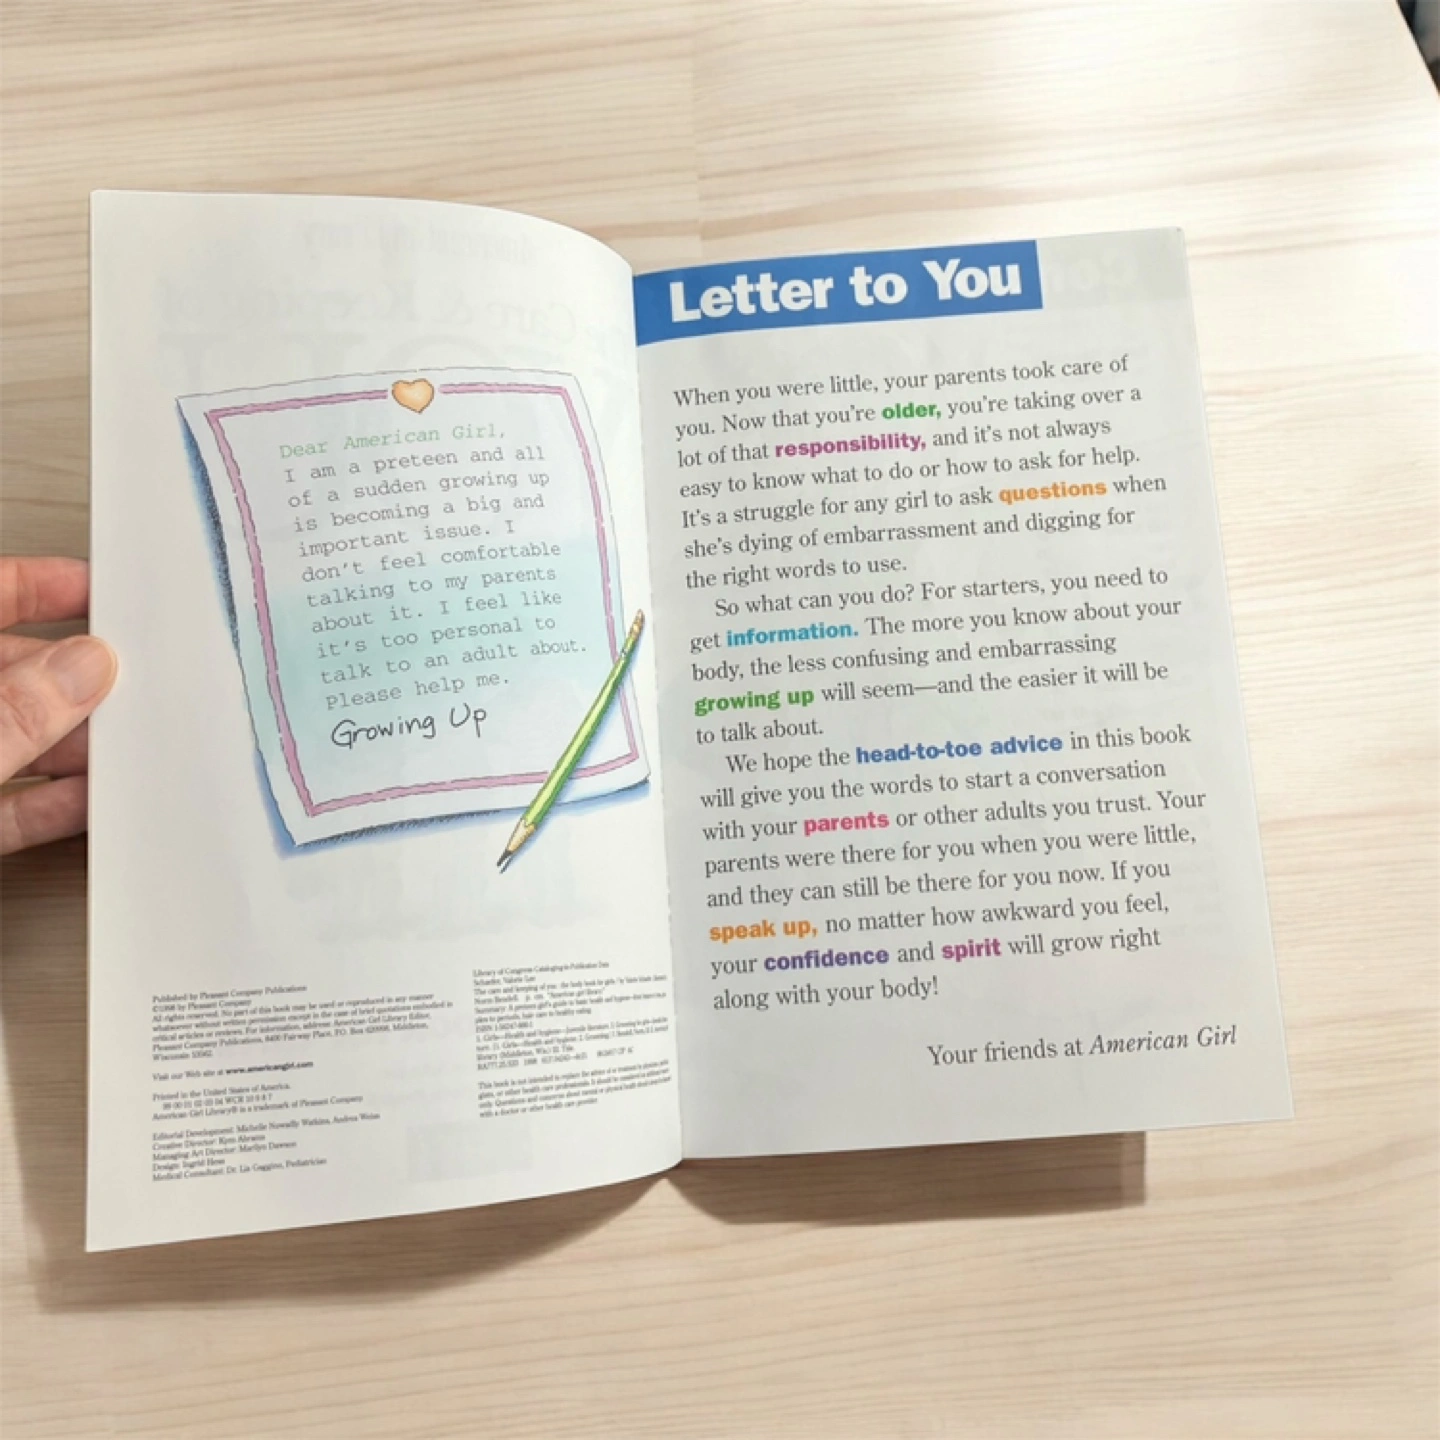 Dear American Girl,
I am a preteen and all
of a sudden growing up
is becoming a big and
important issue. I
don't feel comfortable
talking to my parents
about it. I feel like
it's too personal to
talk to an adult about.
Please help me.
Growing Up
Published by Pleasant Company Publications
©1998 by Pleasant Company
All rights reserved. No part of this book may be used or reproduced in any manner
whatsoever without written permission except in the case of brief quotations embodied in
critical articles or reviews. For information, address: American Girl Library Editor,
Pleasant Company Publications, 8400 Fairway Place, P.O. Box 620998, Middleton,
Wisconsin 53562.
Visit our Web site at www.americangirl.com
Printed in the United States of America.
American Girl Library® is a trademark of Pleasant Company
Editorial Development: Michelle Nowadly Watkins, Andrea Weiss
Creative Director: Kym Abrams
Managing Art Director: Marilyn Dawson
Design: Ingrid Hess
Medical Consultant: Dr. Lia Gaggino, Pediatrician
Library of Congress Cataloging-in-Publication Data
Letter to You
When you were little, your parents took care of
you. Now that you're older, you're taking over a
lot of that responsibility, and it's not always
easy to know what to do or how to ask for help.
It's a struggle for any girl to ask questions when
she's dying of embarrassment and digging for
the right words to use.
So what can you do? For starters, you need to
get information. The more you know about your
body, the less confusing and embarrassing
growing up will seem—and the easier it will be
to talk about.
We hope the head-to-toe advice in this book
will give you the words to start a conversation
with your parents or other adults you trust. Your
parents were there for you when you were little,
and they can still be there for you now. If you
speak up, no matter how awkward you feel,
your confidence and spirit will grow right
along with your body!
Your friends at American Girl